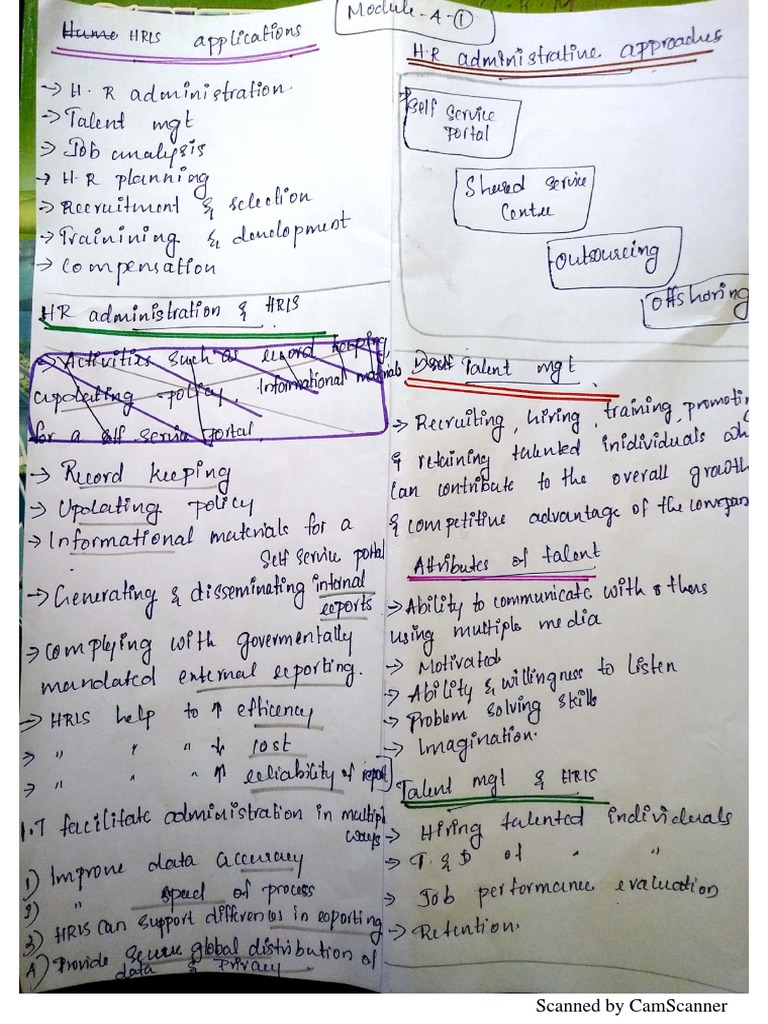 Module-4-①
Hume HRIS applications
→ H.R administration.
→ Talent mgt
→ Job analysis
→ H.R planning
→ Recruitment & selection
→ Trainining & development
→ Compensation
HR administration & HRIS
→ Activities such as record keeping,
updating policy, Informational materials
for a self service portal.
→ Record keeping
→ Updating policy
→ Informational materials for a
self service portal
→ Generating & disseminating internal
reports.
→ Complying with govermentally
mandated external reporting.
→ HRIS help to ↑ efficency
→ " " " ↓ cost
→ " " " ↑ reliability of report
I.T facilitate administration in multiple
ways
1) Improve data accuracy
2) " speed of process
3) HRIS can support differences in reporting
4) Provide secure global distribution of
data & Privacy.
H.R administrative approaches
Self Service
Portal
Shared Service
Centre
Outsourcing
Offshoring
Talent mgt.
→ Recruiting, hiring, training, promotin
& retaining talented inidividuals wh
can contribute to the overall growth
& competitive advantage of the
Attributes of talent
→ Ability to communicate with others
using multiple media
→ Motivated
→ Ability & willingness to listen
→ Problem solving skills
→ Imagination.
Talent mgt & HRIS
→ Hiring talented individuals
→ T. & D of " "
→ Job performance evaluation
→ Retention.
Scanned by CamScanner